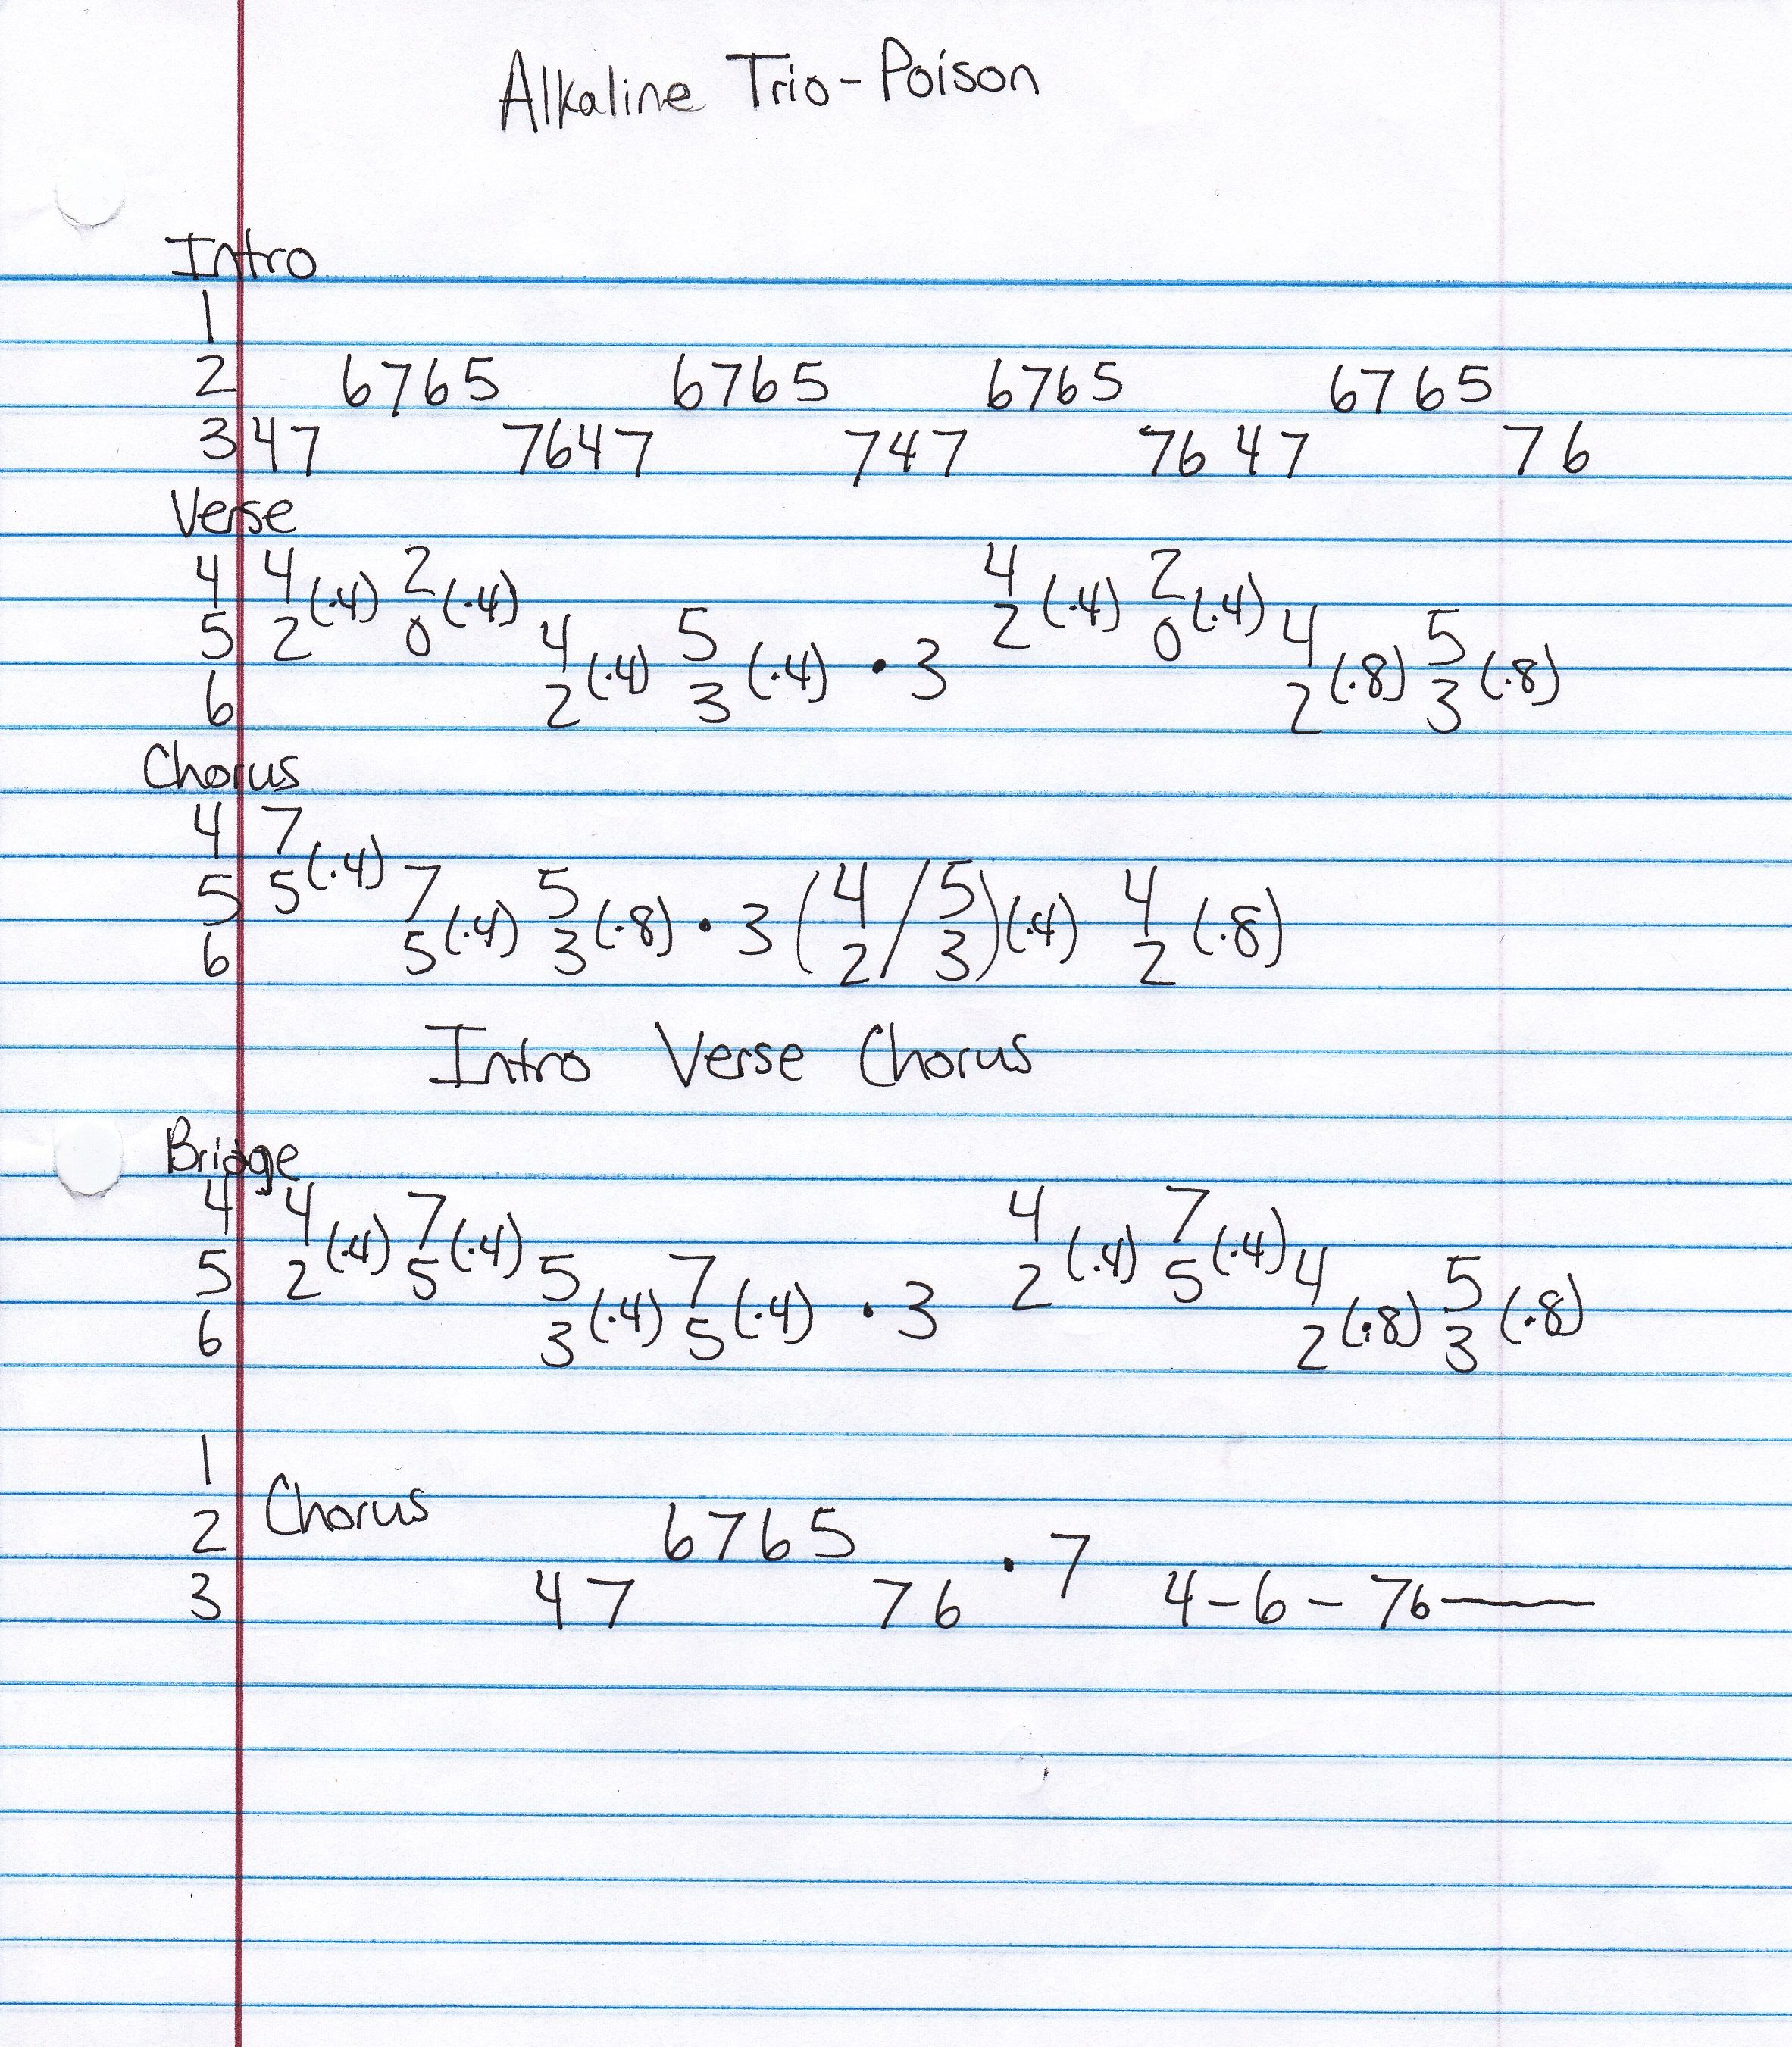 Alkaline Trio-Poison
Intro
1
2 6765 6765 6765 6765
3 47 7647 747 7647 76
Verse
4 4 (·4) 2 (·4) 4 (·4) 2 (·4)
5 2 0 4 (·4) 5 (·4) · 3 2 0 4 (·8) 5 (·8)
6 2 3 2 3
Chorus
4 7 (·4)
5 5 7 (·4) 5 (·8) · 3 (4 / 5) (·4) 4 (·8)
6 5 3 2 3 2
Intro Verse Chorus
Bridge
4 4 (·4) 7 (·4) 4 (·4) 7 (·4)
5 2 5 5 (·4) 7 (·4) · 3 2 5 4 (·8) 5 (·8)
6 3 5 2 3
1
2 Chorus 6765 · 7
3 47 76 4-6-76—